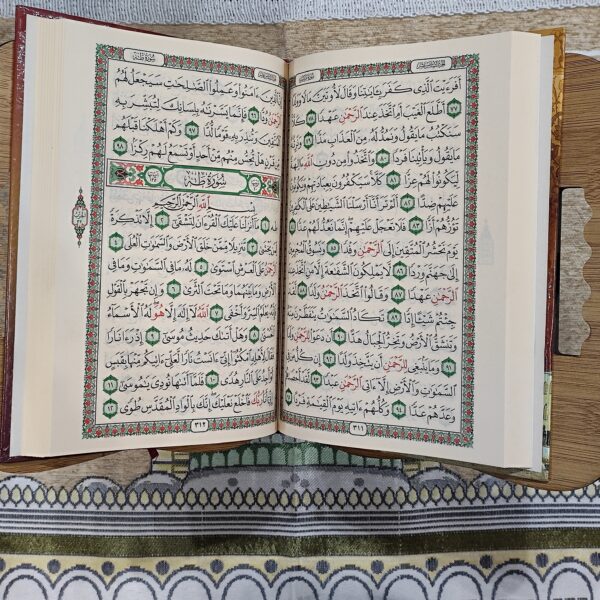 سورة مريم
أَفَرَءَيْتَ ٱلَّذِى كَفَرَ بِـَٔايَـٰتِنَا وَقَالَ لَأُوتَيَنَّ مَالًا وَوَلَدًا
٧٧ أَطَّلَعَ ٱلْغَيْبَ أَمِ ٱتَّخَذَ عِندَ ٱلرَّحْمَـٰنِ عَهْدًا ٧٨ كَلَّا
سَنَكْتُبُ مَا يَقُولُ وَنَمُدُّ لَهُۥ مِنَ ٱلْعَذَابِ مَدًّا ٧٩ وَنَرِثُهُۥ
مَا يَقُولُ وَيَأْتِينَا فَرْدًا ٨٠ وَٱتَّخَذُوا۟ مِن دُونِ ٱللَّهِ ءَالِهَةً
لِّيَكُونُوا۟ لَهُمْ عِزًّا ٨١ كَلَّا سَيَكْفُرُونَ بِعِبَادَتِهِمْ وَيَكُونُونَ
عَلَيْهِمْ ضِدًّا ٨٢ أَلَمْ تَرَ أَنَّآ أَرْسَلْنَا ٱلشَّيَـٰطِينَ عَلَى ٱلْكَـٰفِرِينَ
تَؤُزُّهُمْ أَزًّا ٨٣ فَلَا تَعْجَلْ عَلَيْهِمْ إِنَّمَا نَعُدُّ لَهُمْ عَدًّا ٨٤
يَوْمَ نَحْشُرُ ٱلْمُتَّقِينَ إِلَى ٱلرَّحْمَـٰنِ وَفْدًا ٨٥ وَنَسُوقُ ٱلْمُجْرِمِينَ
إِلَىٰ جَهَنَّمَ وِرْدًا ٨٦ لَّا يَمْلِكُونَ ٱلشَّفَـٰعَةَ إِلَّا مَنِ ٱتَّخَذَ عِندَ
ٱلرَّحْمَـٰنِ عَهْدًا ٨٧ وَقَالُوا۟ ٱتَّخَذَ ٱلرَّحْمَـٰنُ وَلَدًا ٨٨ لَّقَدْ
جِئْتُمْ شَيْـًٔا إِدًّا ٨٩ تَكَادُ ٱلسَّمَـٰوَٰتُ يَتَفَطَّرْنَ مِنْهُ
وَتَنشَقُّ ٱلْأَرْضُ وَتَخِرُّ ٱلْجِبَالُ هَدًّا ٩٠ أَن دَعَوْا۟ لِلرَّحْمَـٰنِ وَلَدًا
٩١ وَمَا يَنۢبَغِى لِلرَّحْمَـٰنِ أَن يَتَّخِذَ وَلَدًا ٩٢ إِن كُلُّ مَن فِى
ٱلسَّمَـٰوَٰتِ وَٱلْأَرْضِ إِلَّآ ءَاتِى ٱلرَّحْمَـٰنِ عَبْدًا ٩٣ لَّقَدْ أَحْصَىٰهُمْ
وَعَدَّهُمْ عَدًّا ٩٤ وَكُلُّهُمْ ءَاتِيهِ يَوْمَ ٱلْقِيَـٰمَةِ فَرْدًا ٩٥
٣١١
سورة طه
إِنَّ ٱلَّذِينَ ءَامَنُوا۟ وَعَمِلُوا۟ ٱلصَّـٰلِحَـٰتِ سَيَجْعَلُ لَهُمُ
ٱلرَّحْمَـٰنُ وُدًّا ٩٦ فَإِنَّمَا يَسَّرْنَـٰهُ بِلِسَانِكَ لِتُبَشِّرَ بِهِ
ٱلْمُتَّقِينَ وَتُنذِرَ بِهِۦ قَوْمًا لُّدًّا ٩٧ وَكَمْ أَهْلَكْنَا قَبْلَهُم
مِّن قَرْنٍ هَلْ تُحِسُّ مِنْهُم مِّنْ أَحَدٍ أَوْ تَسْمَعُ لَهُمْ رِكْزًۢا ٩٨
سُورَةُ طه
بِسْمِ ٱللَّهِ ٱلرَّحْمَـٰنِ ٱلرَّحِيمِ
طه ١ مَآ أَنزَلْنَا عَلَيْكَ ٱلْقُرْءَانَ لِتَشْقَىٰٓ ٢ إِلَّا تَذْكِرَةً
لِّمَن يَخْشَىٰ ٣ تَنزِيلًا مِّمَّنْ خَلَقَ ٱلْأَرْضَ وَٱلسَّمَـٰوَٰتِ ٱلْعُلَى ٤
ٱلرَّحْمَـٰنُ عَلَى ٱلْعَرْشِ ٱسْتَوَىٰ ٥ لَهُۥ مَا فِى ٱلسَّمَـٰوَٰتِ وَمَا فِى
ٱلْأَرْضِ وَمَا بَيْنَهُمَا وَمَا تَحْتَ ٱلثَّرَىٰ ٦ وَإِن تَجْهَرْ بِٱلْقَوْلِ
فَإِنَّهُۥ يَعْلَمُ ٱلسِّرَّ وَأَخْفَى ٧ ٱللَّهُ لَآ إِلَـٰهَ إِلَّا هُوَ لَهُ ٱلْأَسْمَآءُ
ٱلْحُسْنَىٰ ٨ وَهَلْ أَتَىٰكَ حَدِيثُ مُوسَىٰٓ ٩ إِذْ رَءَا نَارًا
فَقَالَ لِأَهْلِهِ ٱمْكُثُوٓا۟ إِنِّىٓ ءَانَسْتُ نَارًا لَّعَلِّىٓ ءَاتِيكُم مِّنْهَا بِقَبَسٍ
أَوْ أَجِدُ عَلَى ٱلنَّارِ هُدًى ١٠ فَلَمَّآ أَتَىٰهَا نُودِىَ يَـٰمُوسَىٰٓ ١١
إِنِّىٓ أَنَا۠ رَبُّكَ فَٱخْلَعْ نَعْلَيْكَ إِنَّكَ بِٱلْوَادِ ٱلْمُقَدَّسِ طُوًى ١٢
٣١٢